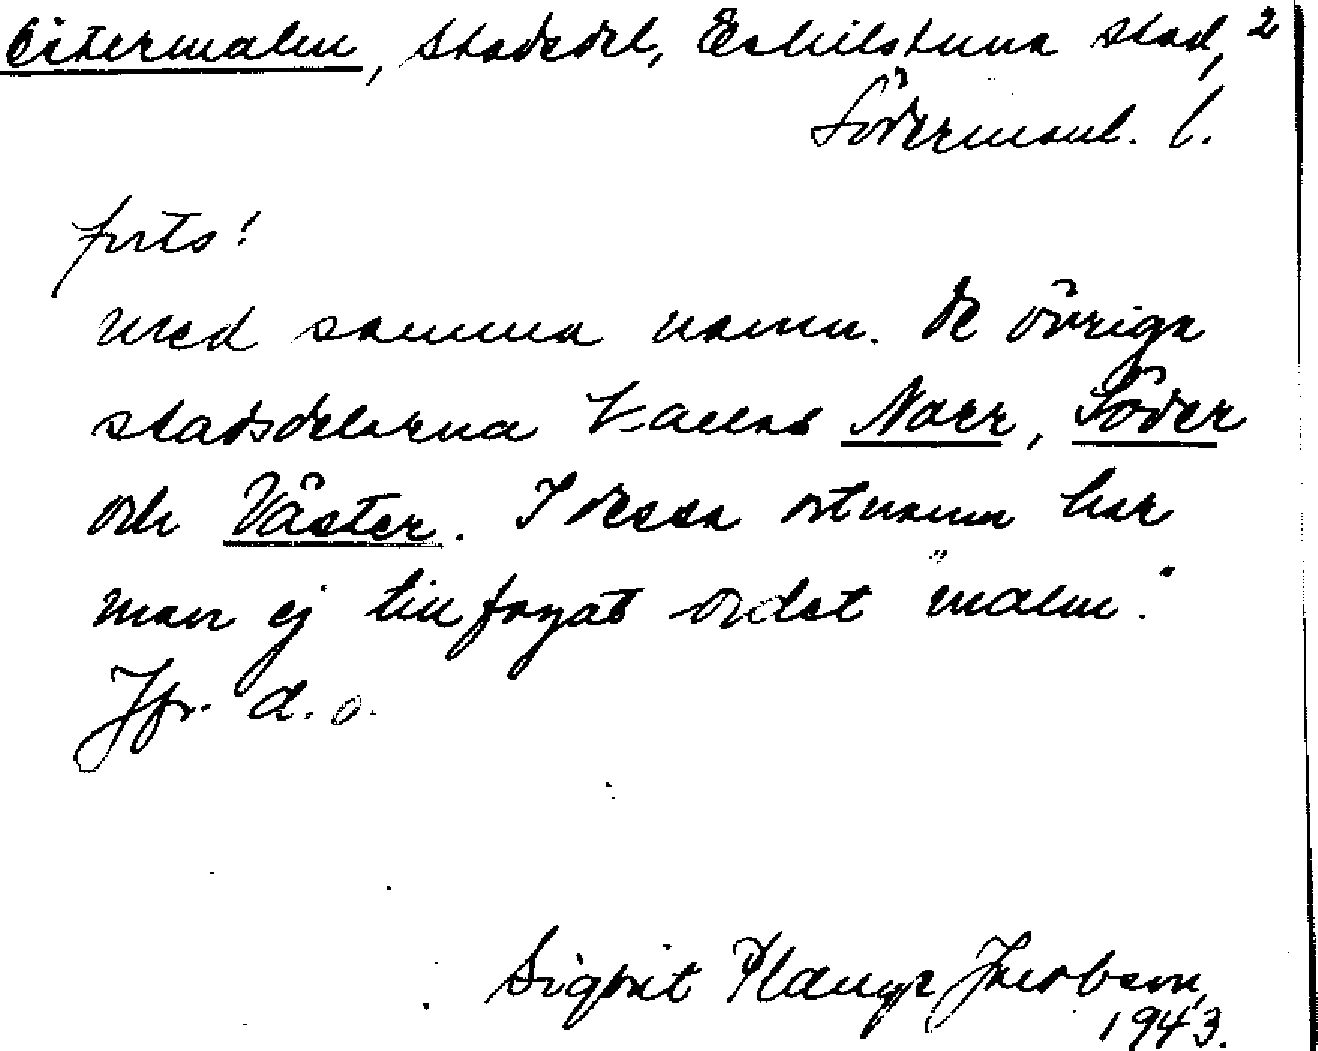 Östermalm, stadsdel, Eskilstuna stad, 2
Södermanl. l.
forts!
med samma namn. De övriga
stadsdelarna kallas Norr, Söder
och Väster. I dessa ortnamn har
man ej tillfogat ordet "malm".
Jfr. d. o.
Sigrit Plænge Jacobson,
1943.